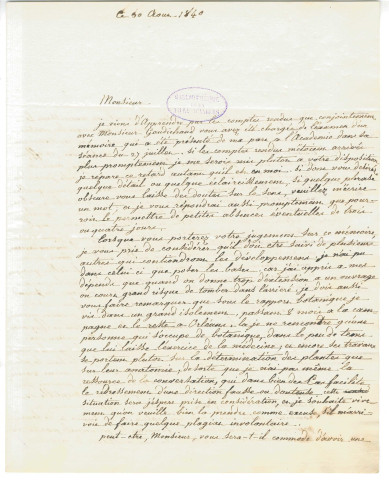 Ce 30 Aout 1840
Monsieur
je viens d'apprendre par les comptes rendus que conjointement
avec Monsieur Gaudichaud vous avez été chargés de l'examen d'un
mémoire, que a été présenté de ma part à l'Académie dans sa
séance du 27 juillet, si les comptes rendus m'étaient arrivés
plus promptement je me serois mis plutot a votre disposition
je répare ce retard autant qu'il est en moi. si donc vous désirez
quelque détail ou quelque éclaircissement, si quelque phrase
obscure vous laisse des doutes sur le sens, veuillez m'écrire
un mot, et je vous répondrai aussi promptement que pour-
roit le permettre de petites absences éventuelles de trois
ou quatre jours.
Lorsque vous porterez votre jugement sur ce mémoire,
je vous prie de considérer qu'il doit être suivi de plusieurs
autres qui contiendront les développemens, je n'ai pu
dans celui ci que poser les bases, car j'ai appris a mes
dépends que quand on donne trop d'extention a un ouvrage
on court grand risque de tomber dans l'arriéré, je dois aussi
vous faire remarquer que sous le rapport botanique je
vis dans un grand isolement, passant 8 mois a la cam-
pagne et le reste a Orléans, la je ne rencontre qu'une
personne qui s'occupe de botanique, dans le peu de tems
que lui laisse l'exercice de la médecine, et encore ses travaux
se portent plutot sur la détermination des plantes que
sur leur anatomie, de sorte que je n'ai pas même la
ressource de la conversation, qui dans bien des cas facilite
le redressement d'une direction fausse ou douteuse, cette
situation sera j'espère prise en considération, et je souhaite vive-
ment qu'on veuille bien la prendre comme excuse, s'il m'arri-
voit de faire quelque plagiat involontaire.
peut-etre, Monsieur, vous sera-t-il commode d'avoir une